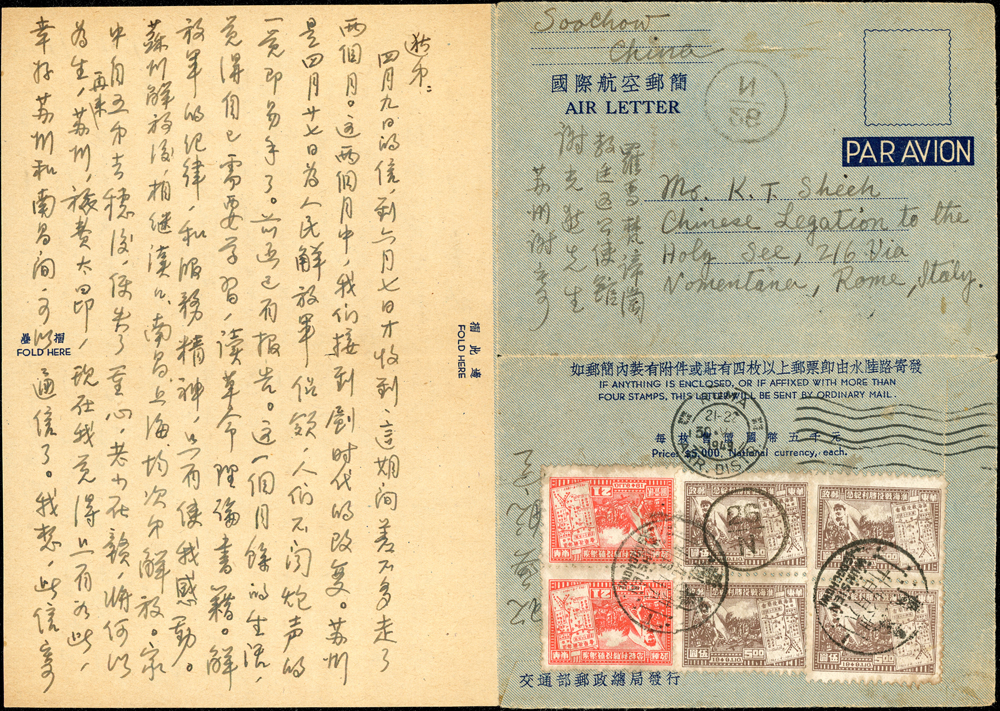 弟:
四月九日的信,到六月七日才收到,這期间差不多走了
两個月。这两個月中,我们接到劃时代的改变。苏州
是四月廿七日為人民解放军佔領,人们不闻炮声的
即易手了。前函已有报告。这一個月餘的生活,
覚得自己需要学習,读革命理論書籍。解
放军的纪律,和服務精神,只有使我感動。
蘇州解放後,相继漢口、南昌、上海,均次第解放。家
中自五弟去穗後,便失了重心,老少在赣,将何以
為生,再来苏州,旅费太昂,現在我覚得只有如此,
幸好苏州和南昌间,可以通信了。我想,此信寄
摺此邊
FOLD HERE
FOLD HERE
Soochow
China
國際航空郵簡
AIR LETTER
PAR AVION
羅馬梵諦岡
教廷公使館
谢光先生
苏州谢寄
Mr. K. T. Sheeh
Chinese Legation to the
Holy See, 216 Via
Nomentana, Rome, Italy.
如郵簡內裝有附件或貼有四枚以上郵票卽由水陸路寄發
IF ANYTHING IS ENCLOSED, OR IF AFFIXED WITH MORE THAN
FOUR STAMPS, THIS LETTER WILL BE SENT BY ORDINARY MAIL.
每枚售價國幣五千元
Price: $5,000, National currency, each.
21-22
1949
DIST
交通部郵政總局發行